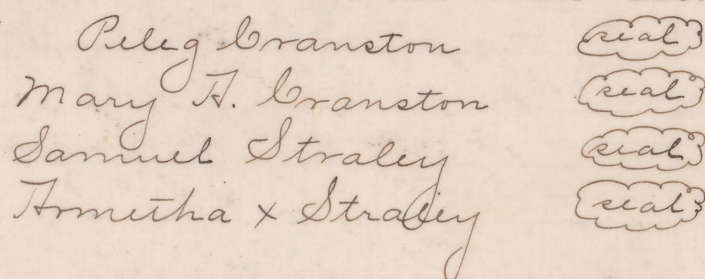 Peleg Cranston seal
Mary H. Cranston seal
Samuel Straley seal
Armetha x Straley seal